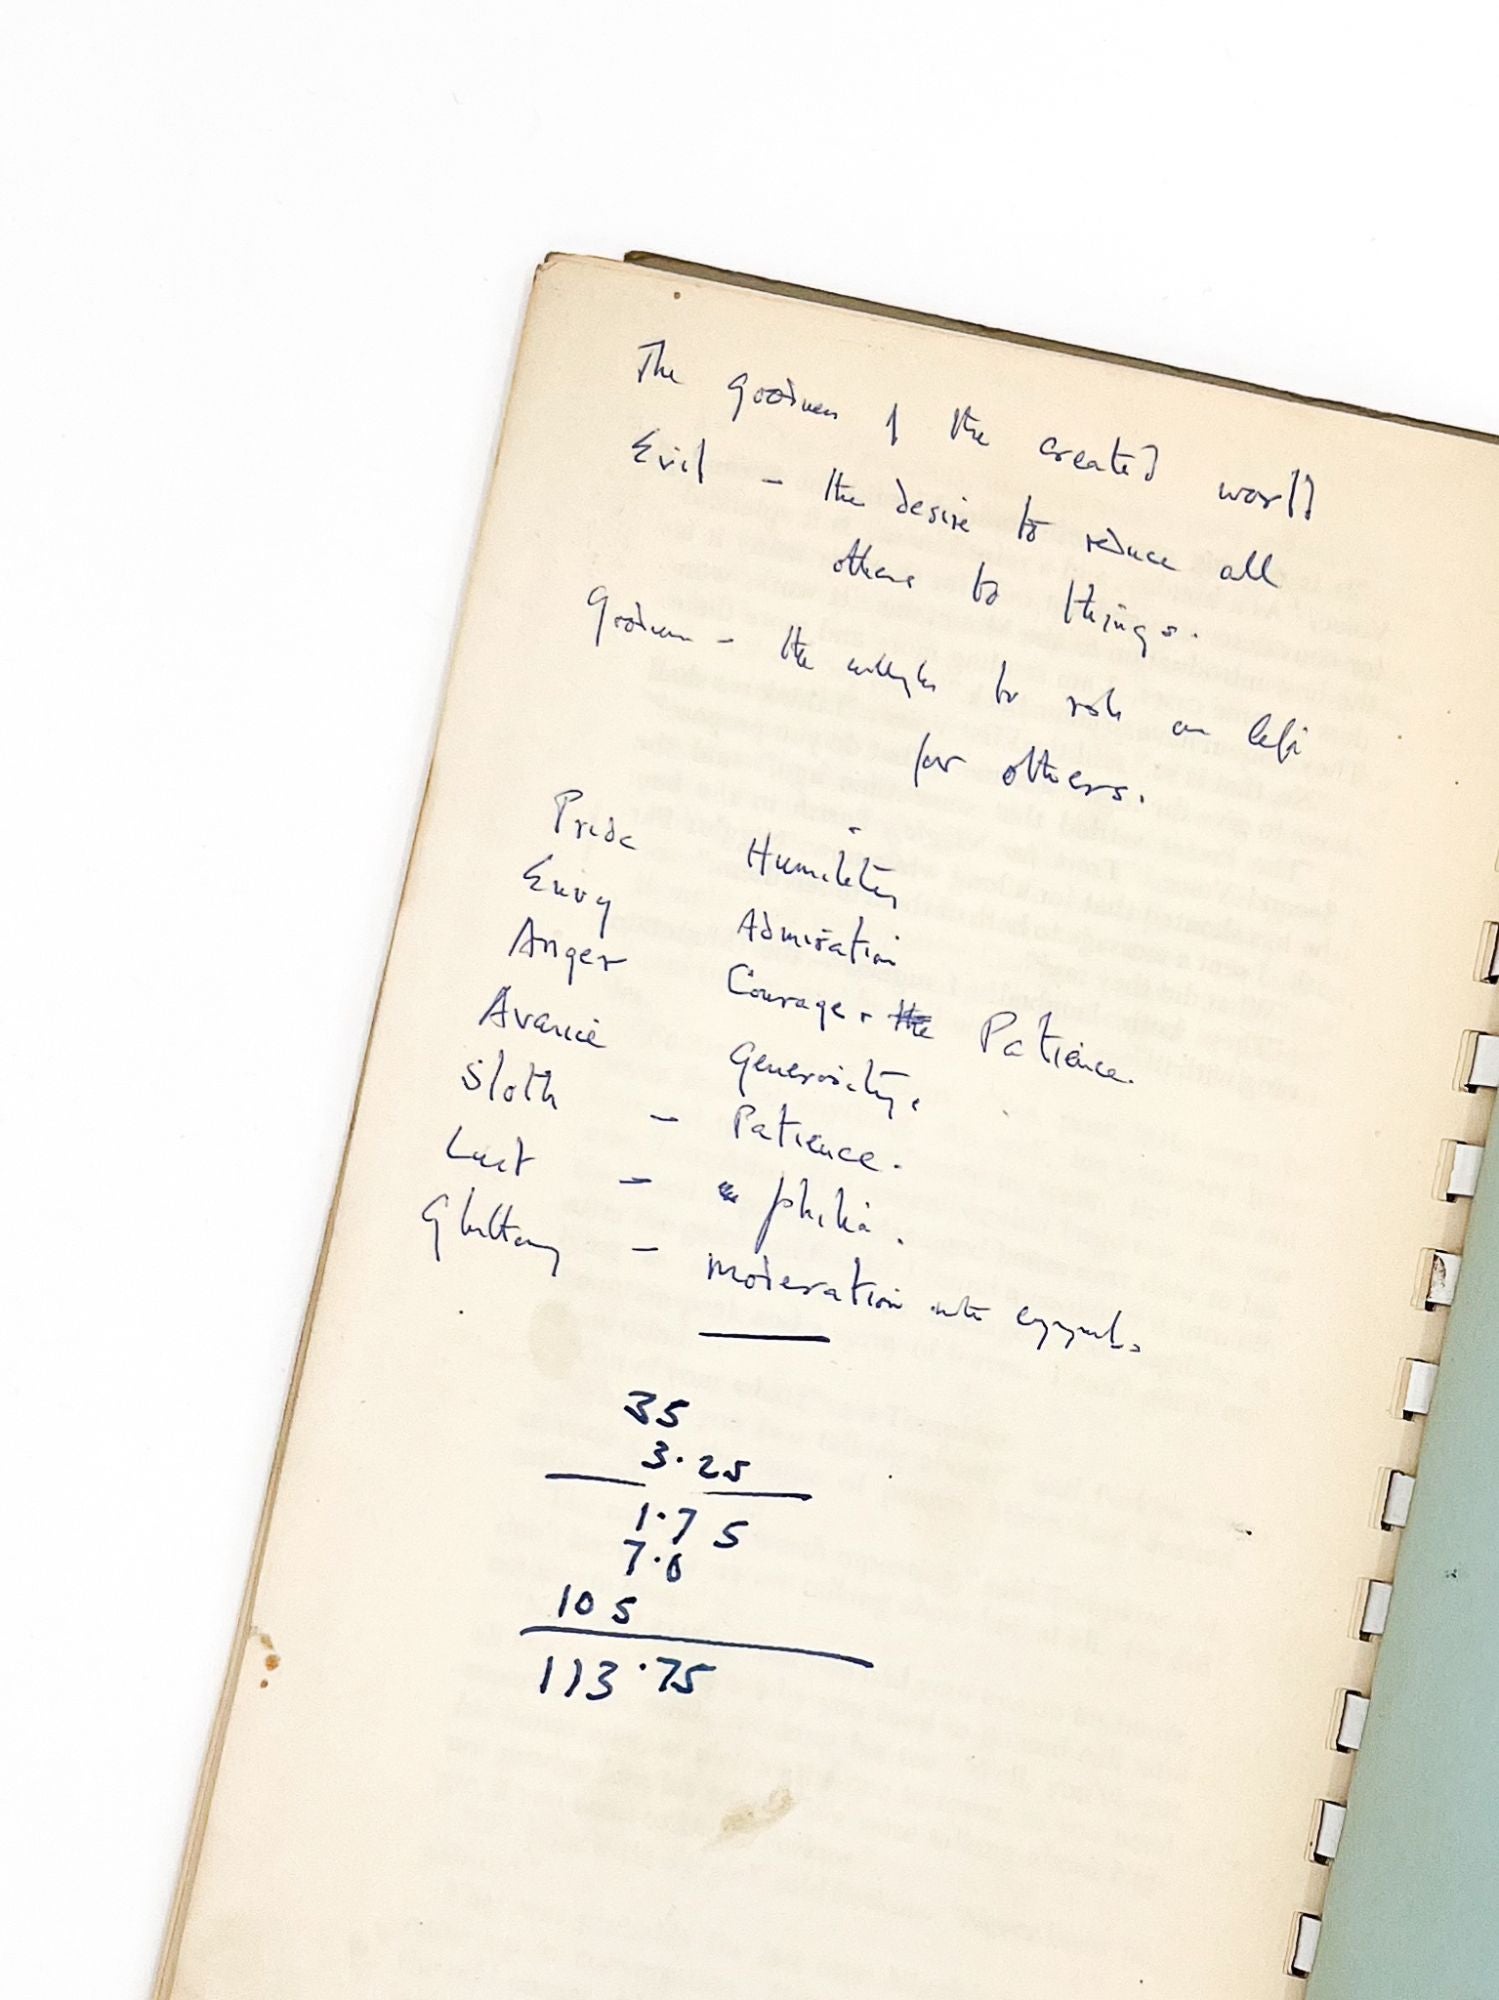 The goodness of the created world
Evil - the desire to reduce all
others to things.
Goodness - the willingness to risk on life
for others.
Pride Humility
Envy Admiration
Anger Courage + the Patience.
Avarice Generosity.
Sloth - Patience.
Lust - philia.
Gluttony - moderation with enjoyment.
35
3.25
1.75
7.0
105
113.75